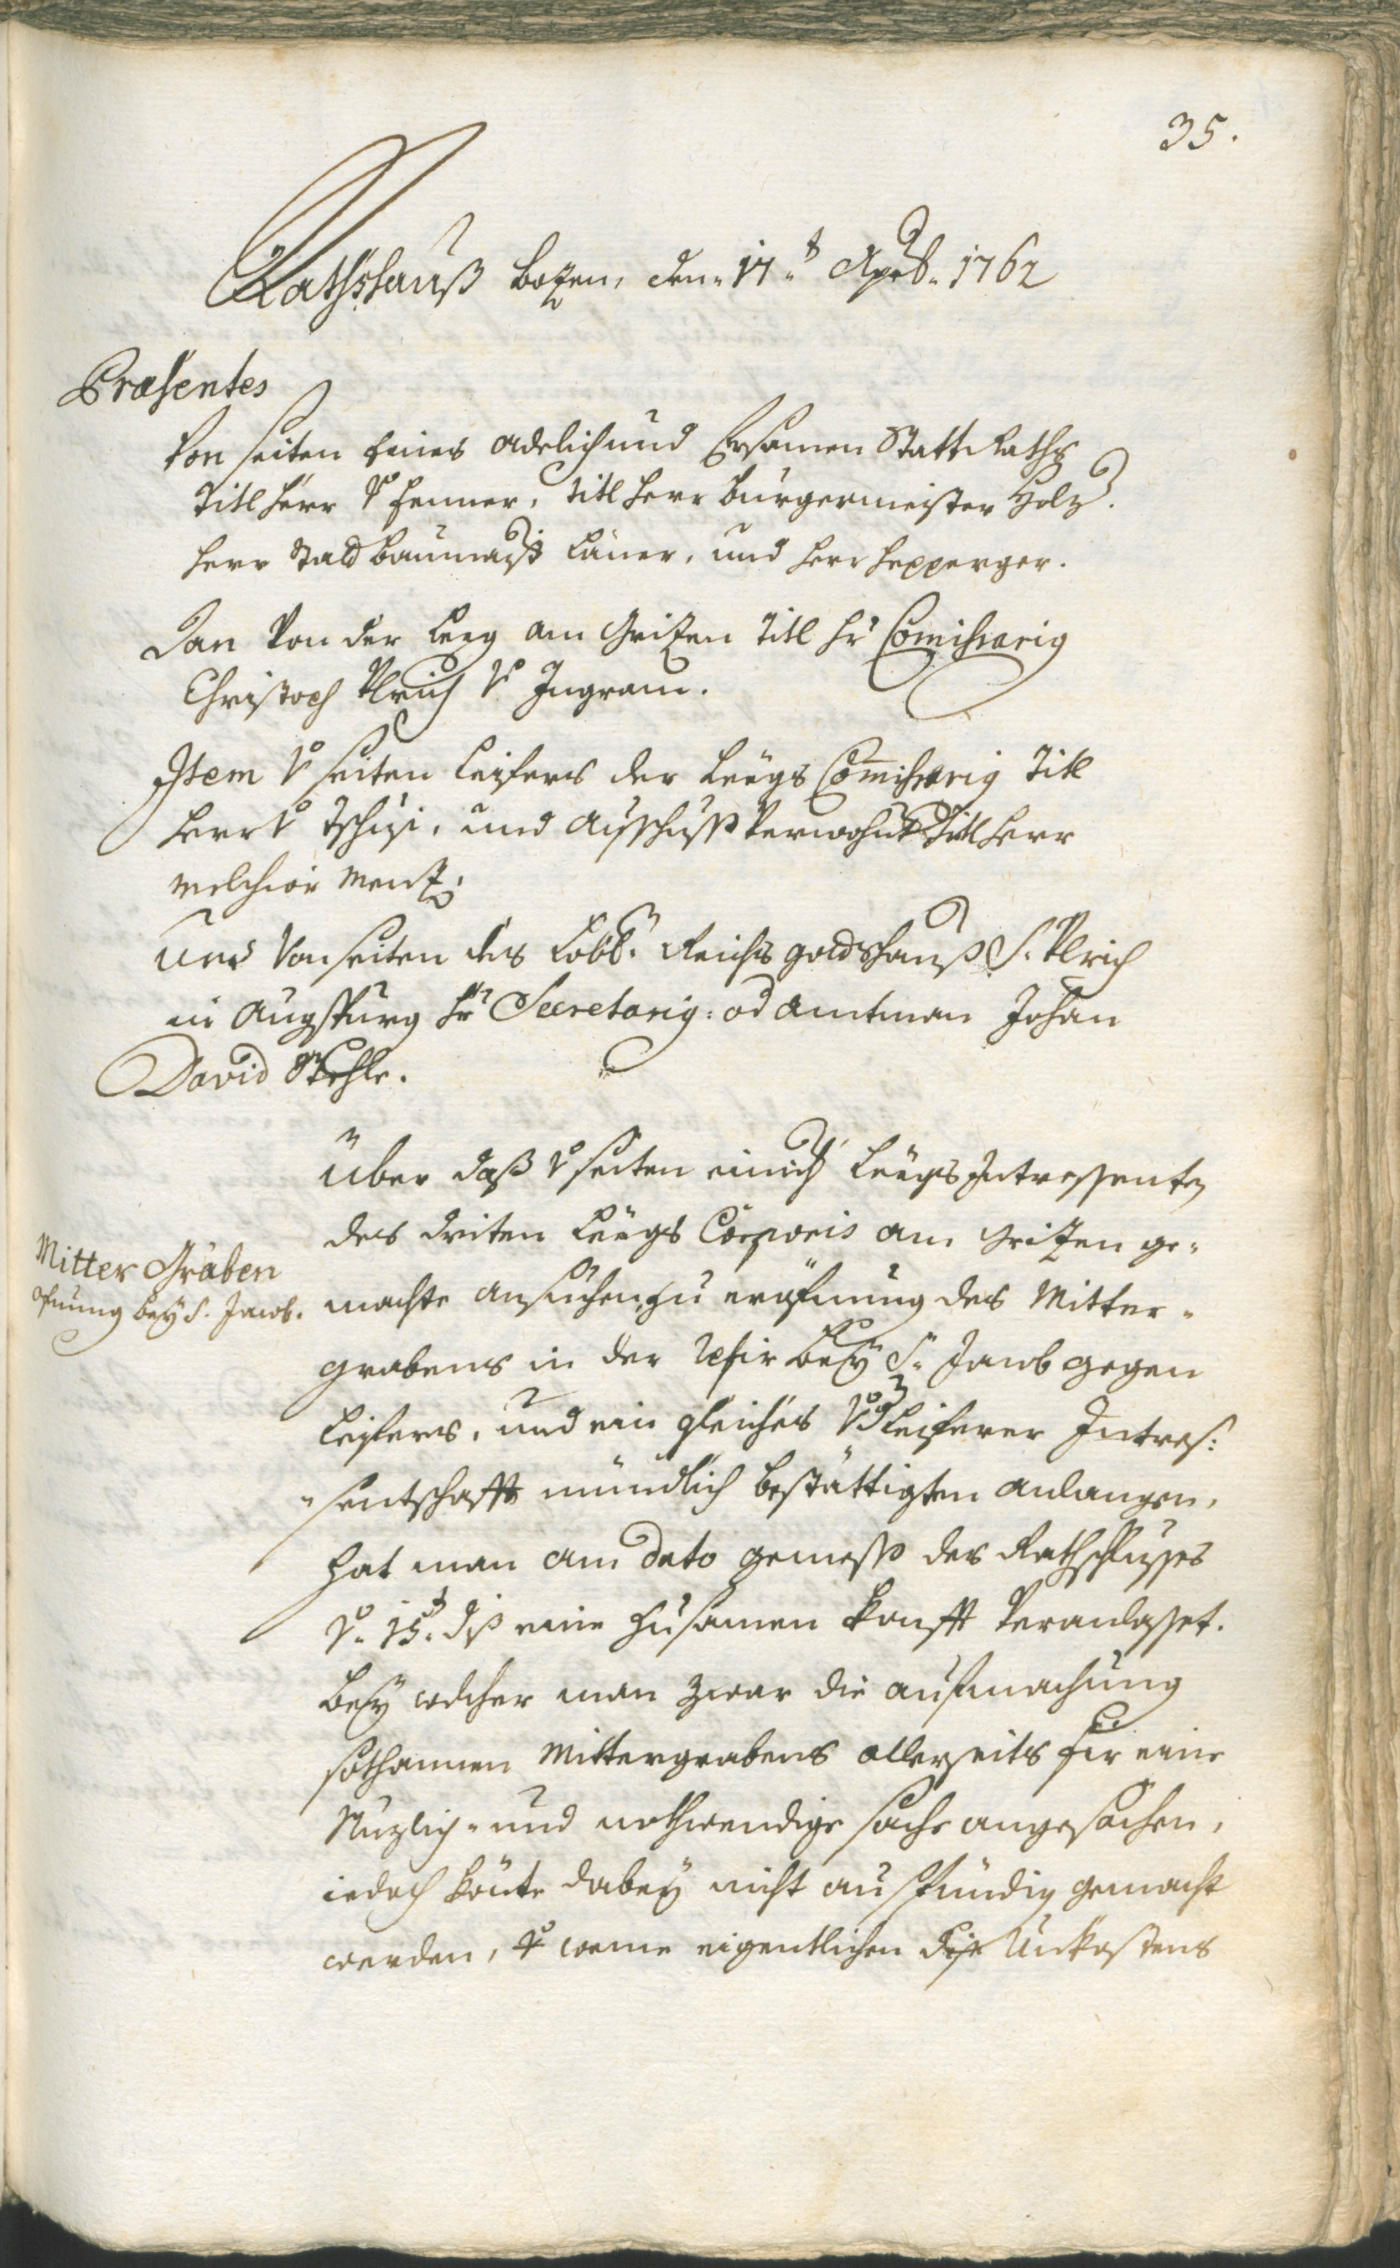 35.
Rathshauß Bozen, den 17.t Aprill. 1762
Præsentes
Von seiten Eines Adelich und Ersamen Statt Raths
Titl Herr v Fenner, Titl Herr Burgermeister Holz.
Herr Stadbaumaist Laner, und Herr Hepperger.
Dan Von der Leeg am Grizen Titl Hr Comißarig
Christoph Ulrich v Ingram.
Item v seiten Leifers der Leegs Comißarig Titl
Herr v Tschusi, und Ausschuss Verwohnt Titl Herr
Melchior Menz.
Und Von seiten des Löbl. Reichs Goldshauß S. Ulrich
in Augspurg Hr Secretarig: od Amtman Johan
David Stehle.
Mitter Graben
öfnung beÿ S. Jacob.
Über daß v seiten einich Leegs Intressenten
des driten Leegs Corporis am Grizen ge-
machte Ansuchen, zu eröfnung des Mitter-
grabens in der Refir beÿ S. Jacob gegen
Leifers, und ein gleiches v d Leiferer Intres:
sentschafft mündlich bestättigten anlangen,
hat man am dato gemess des Rathschlusses
v. 15.t diß eine Zusamen konfft Veranlasset.
Beÿ welcher man zwar die aufmachung
sothannen Mittergrabens allerseits für eine
Nuzlich- und nothwendige sache angesechen,
iedoch könte dabeÿ nicht ausfündig gemacht
werden, v weme eigentlichen die Unkostens